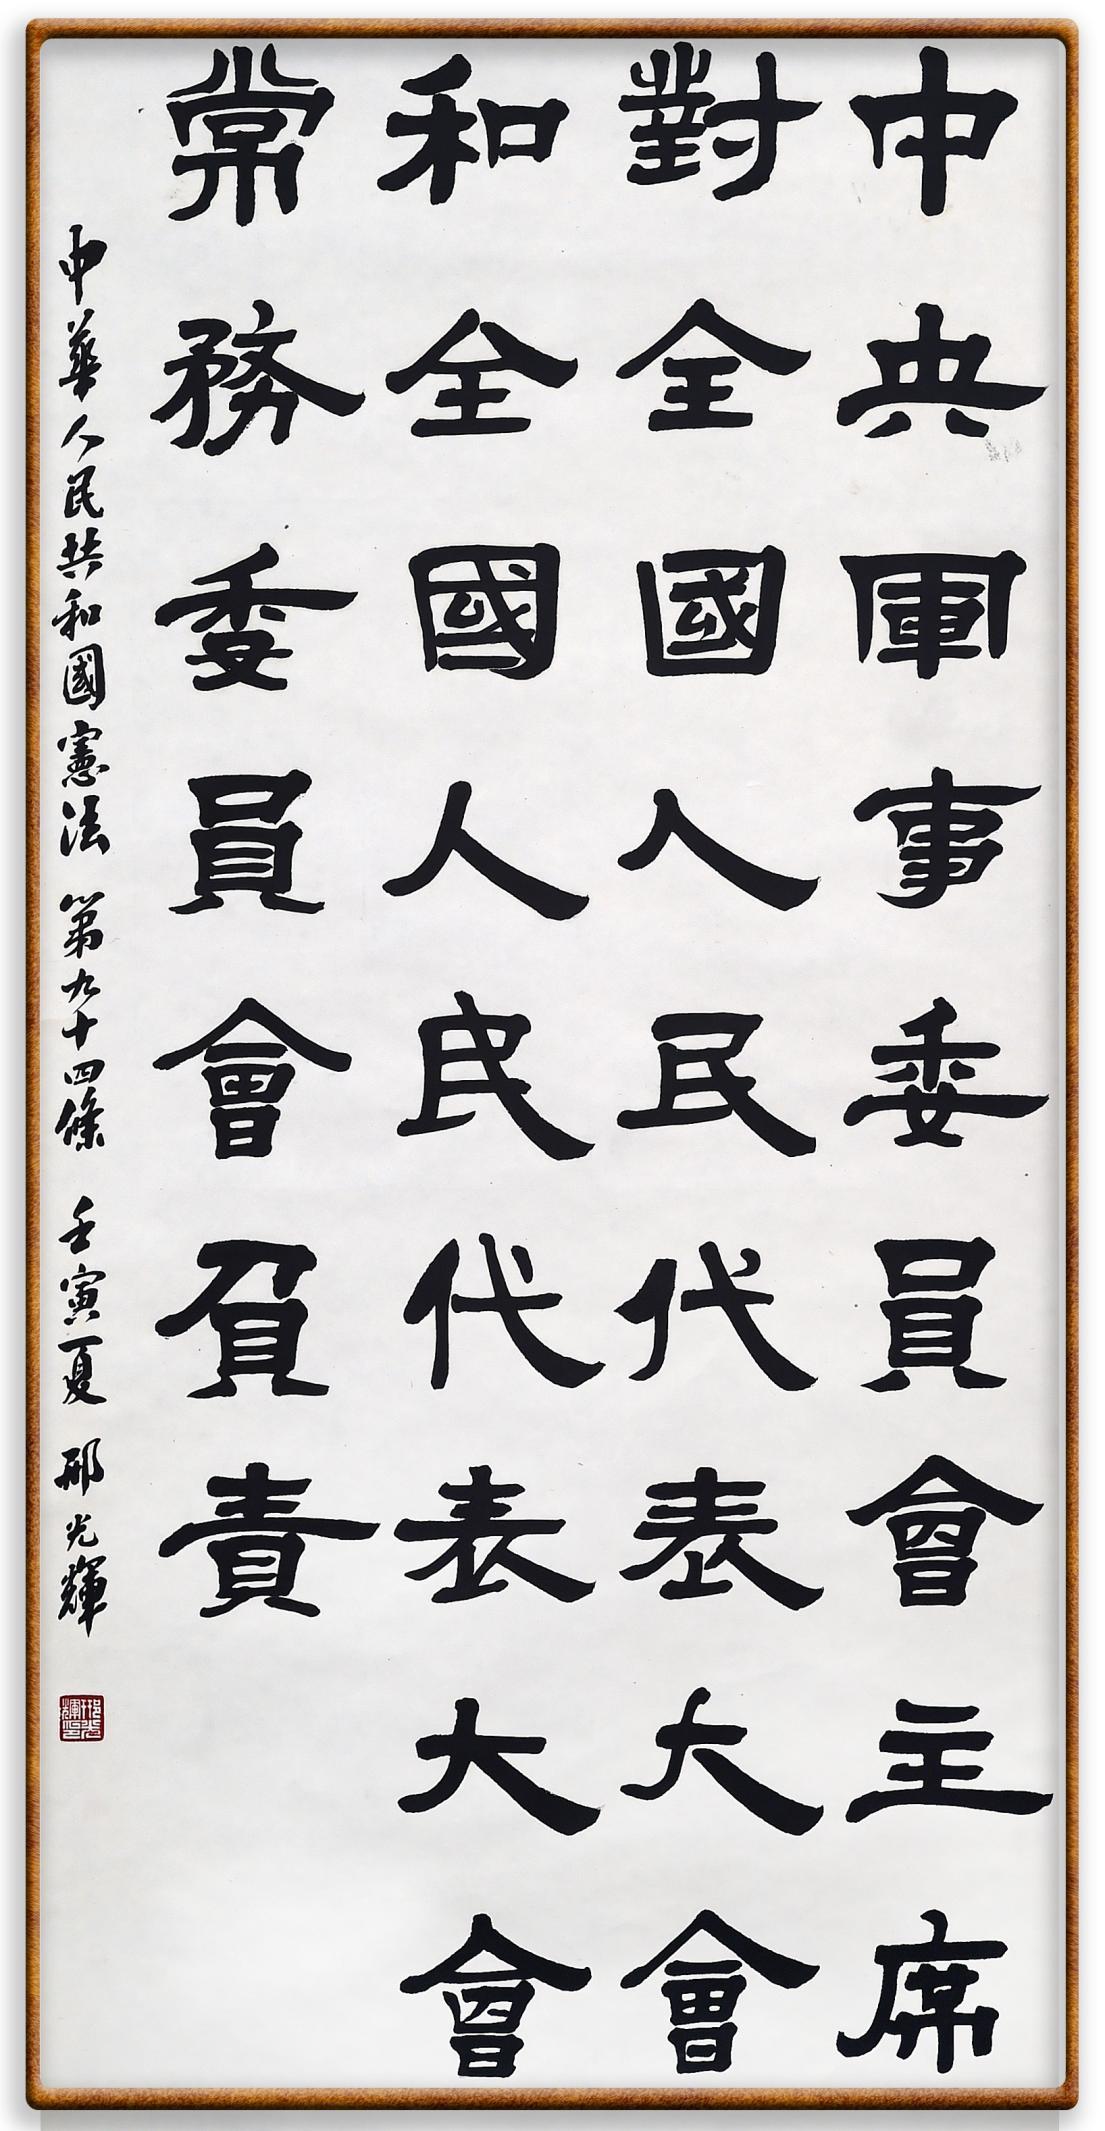 中央軍事委員會主席
對全國人民代表大會
和全國人民代表大會
常務委員會負責
中華人民共和國憲法 第九十四條 壬寅夏 邢光輝